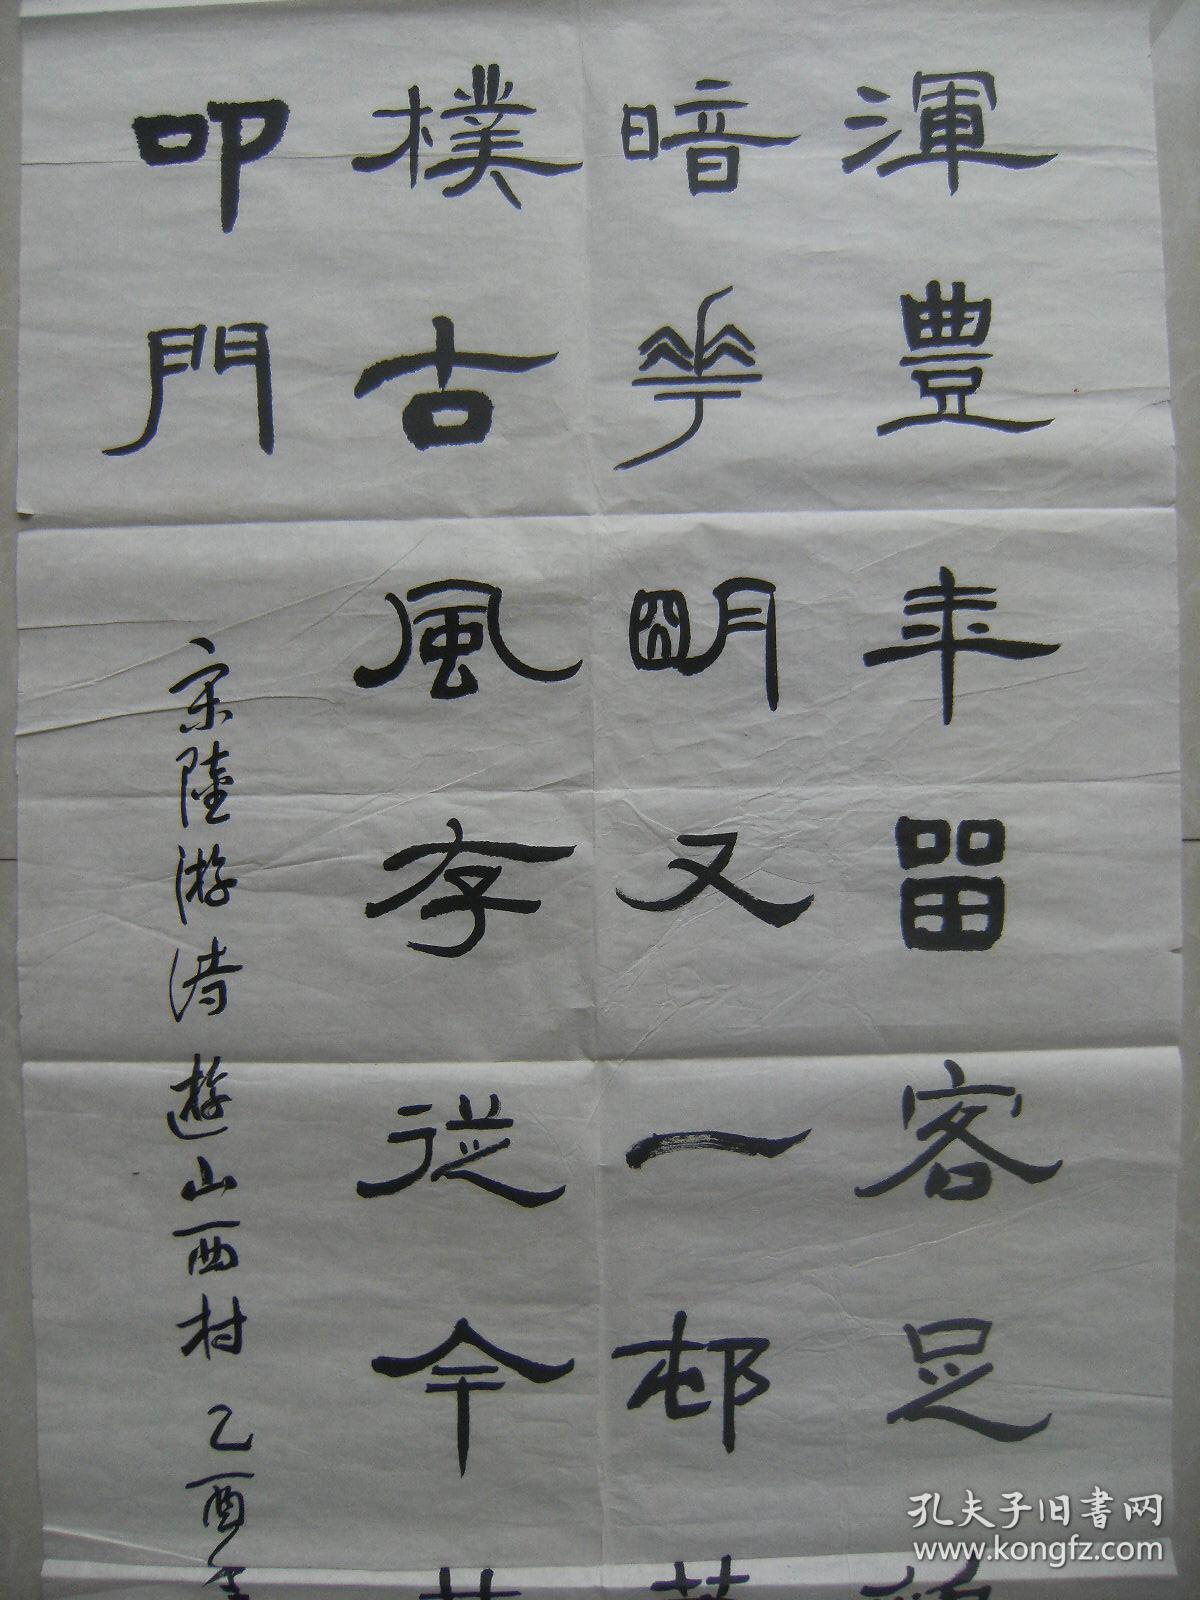 渾豐年留客足
暗花明又一邨
樸古風存從今
叩門
宋陸游詩遊山西村乙酉
孔夫子旧书网
www.kongfz.com